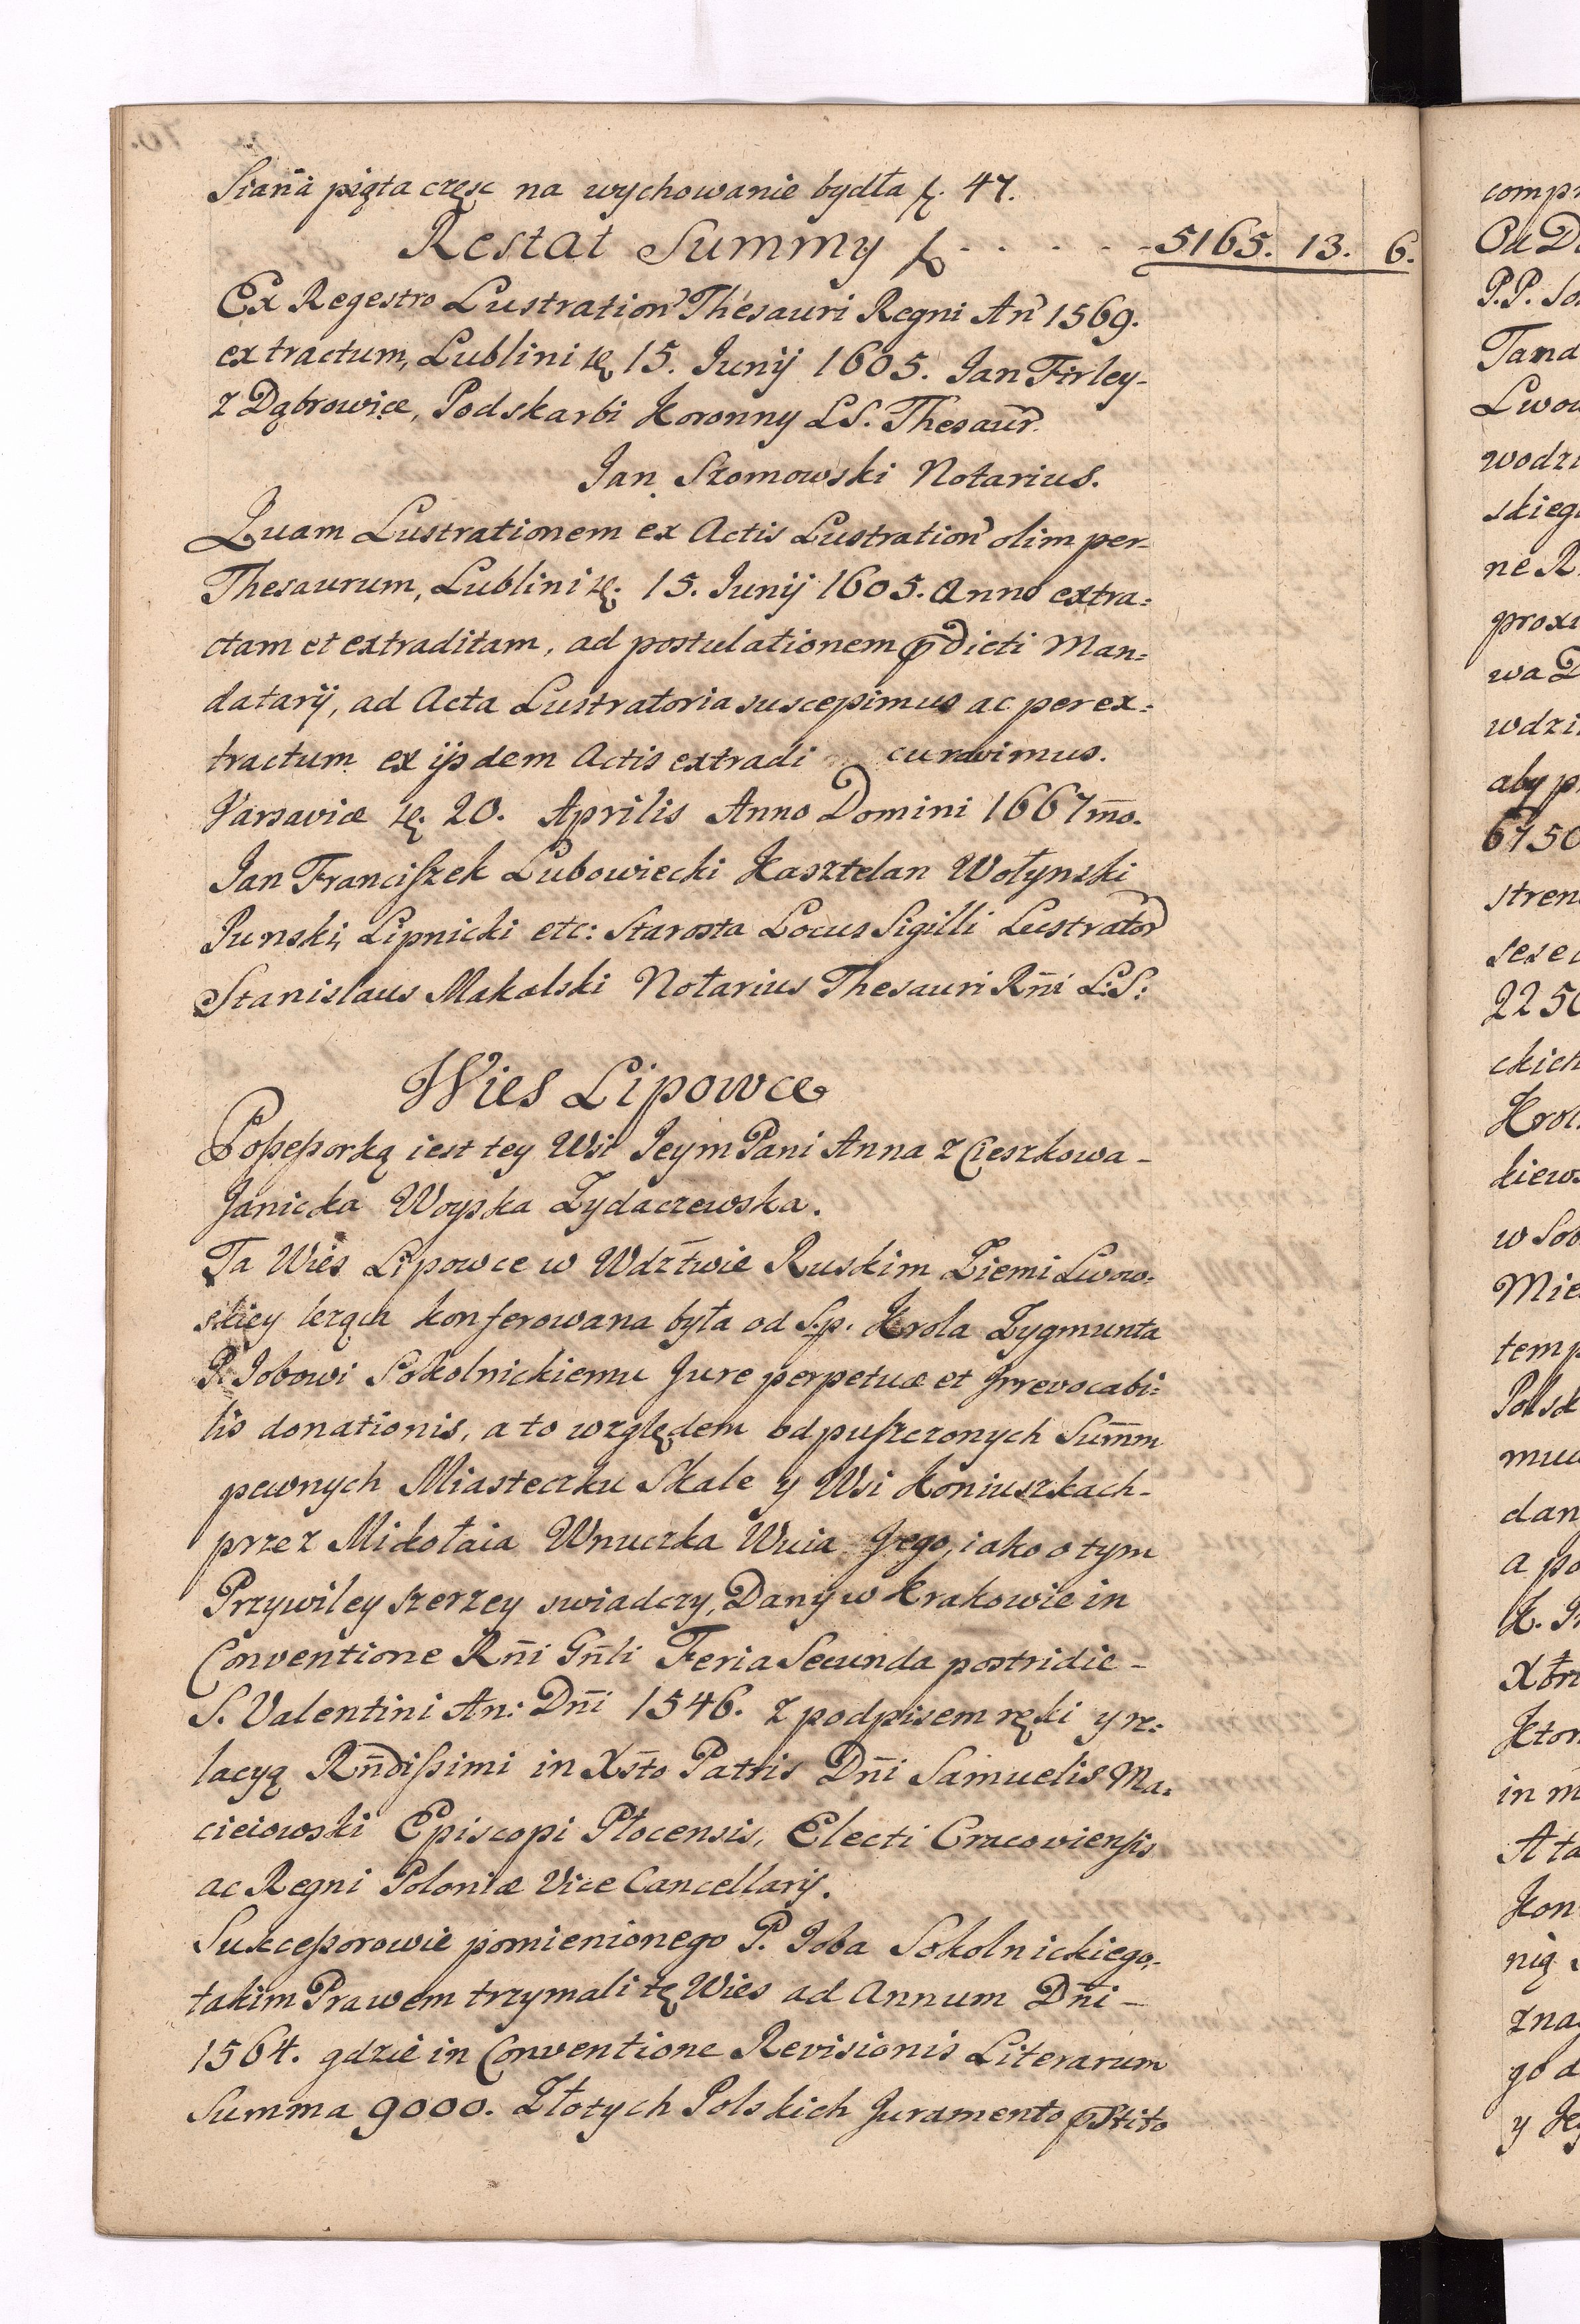 Siana piąta częsc na wychowanie bydła f. 47.
Restat Summy f - - - - - 5165. 13. 6.
Ex Regestro Lustration Thesauri Regni An 1569.
extractum, Lublini 15. Junij 1605. Jan Firley-
z Dąbrowice, Podskarbi Koronny LS. Thesaur.
Jan Szomowski Notarius.
Quam Lustrationem ex Actis Lustration olim per-
Thesaurum, Lublini 15. Junij 1605. Anno extra=
ctam et extraditam, ad postulationem pdicti Man=
datarij, ad Acta Lustratoria suscepimus ac per ex=
tractum ex ijsdem Actis extradi curavimus.
Varsaviæ 20. Aprilis Anno Domini 1667mo.
Jan Franciszek Lubowiecki Kasztelan Wołynski
Junski, Lipnicki etc: Starosta Locus Sigilli Lustrator
Stanislaus Makalski Notarius Thesauri Rñi L:S:
Wies Lipowce
Possessorką iest tey Wsi Jeym Pani Anna z Cieszkowa-
Janicka Woyska Zydaczewska.
Ta Wies Lipowce w Wdztwie Ruskim Ziemi Lwow=
skiey leząca konferowana była od S.p. Krola Zygmunta
P. Jobowi Sokolnickiemu Jure perpetuæ et Jrrevocabi=
lis donationis, a to względem odpuszczonych Sumḿ
pewnych Miasteczku Skale y Wsi Koniuszkach-
przez Mikołaia Wnuczka Wuia Jego, iako o tym
Przywiley szerzey swiadczy, Dany w Krakowie in
Conventione Rñi Gñli Feria Secunda postridie-
S. Valentini An: Dñi 1546. z podpisem ręki y re=
lacyą Rñdissimi in Xsto Patris Dñi Samuelis Ma=
cieiowski Episcopi Płocensis, Electi Cracoviensis
ac Regni Poloniæ Vice Cancellarij.
Sukcessorowie pomienionego P. Joba Sokolnickiego,
takim Prawem trzymali tę Wies ad Annum Dñi-
1564. gdzie in Conventione Revisionis Literarum
Summa 9000. Złotych Polskich Juramento pstito